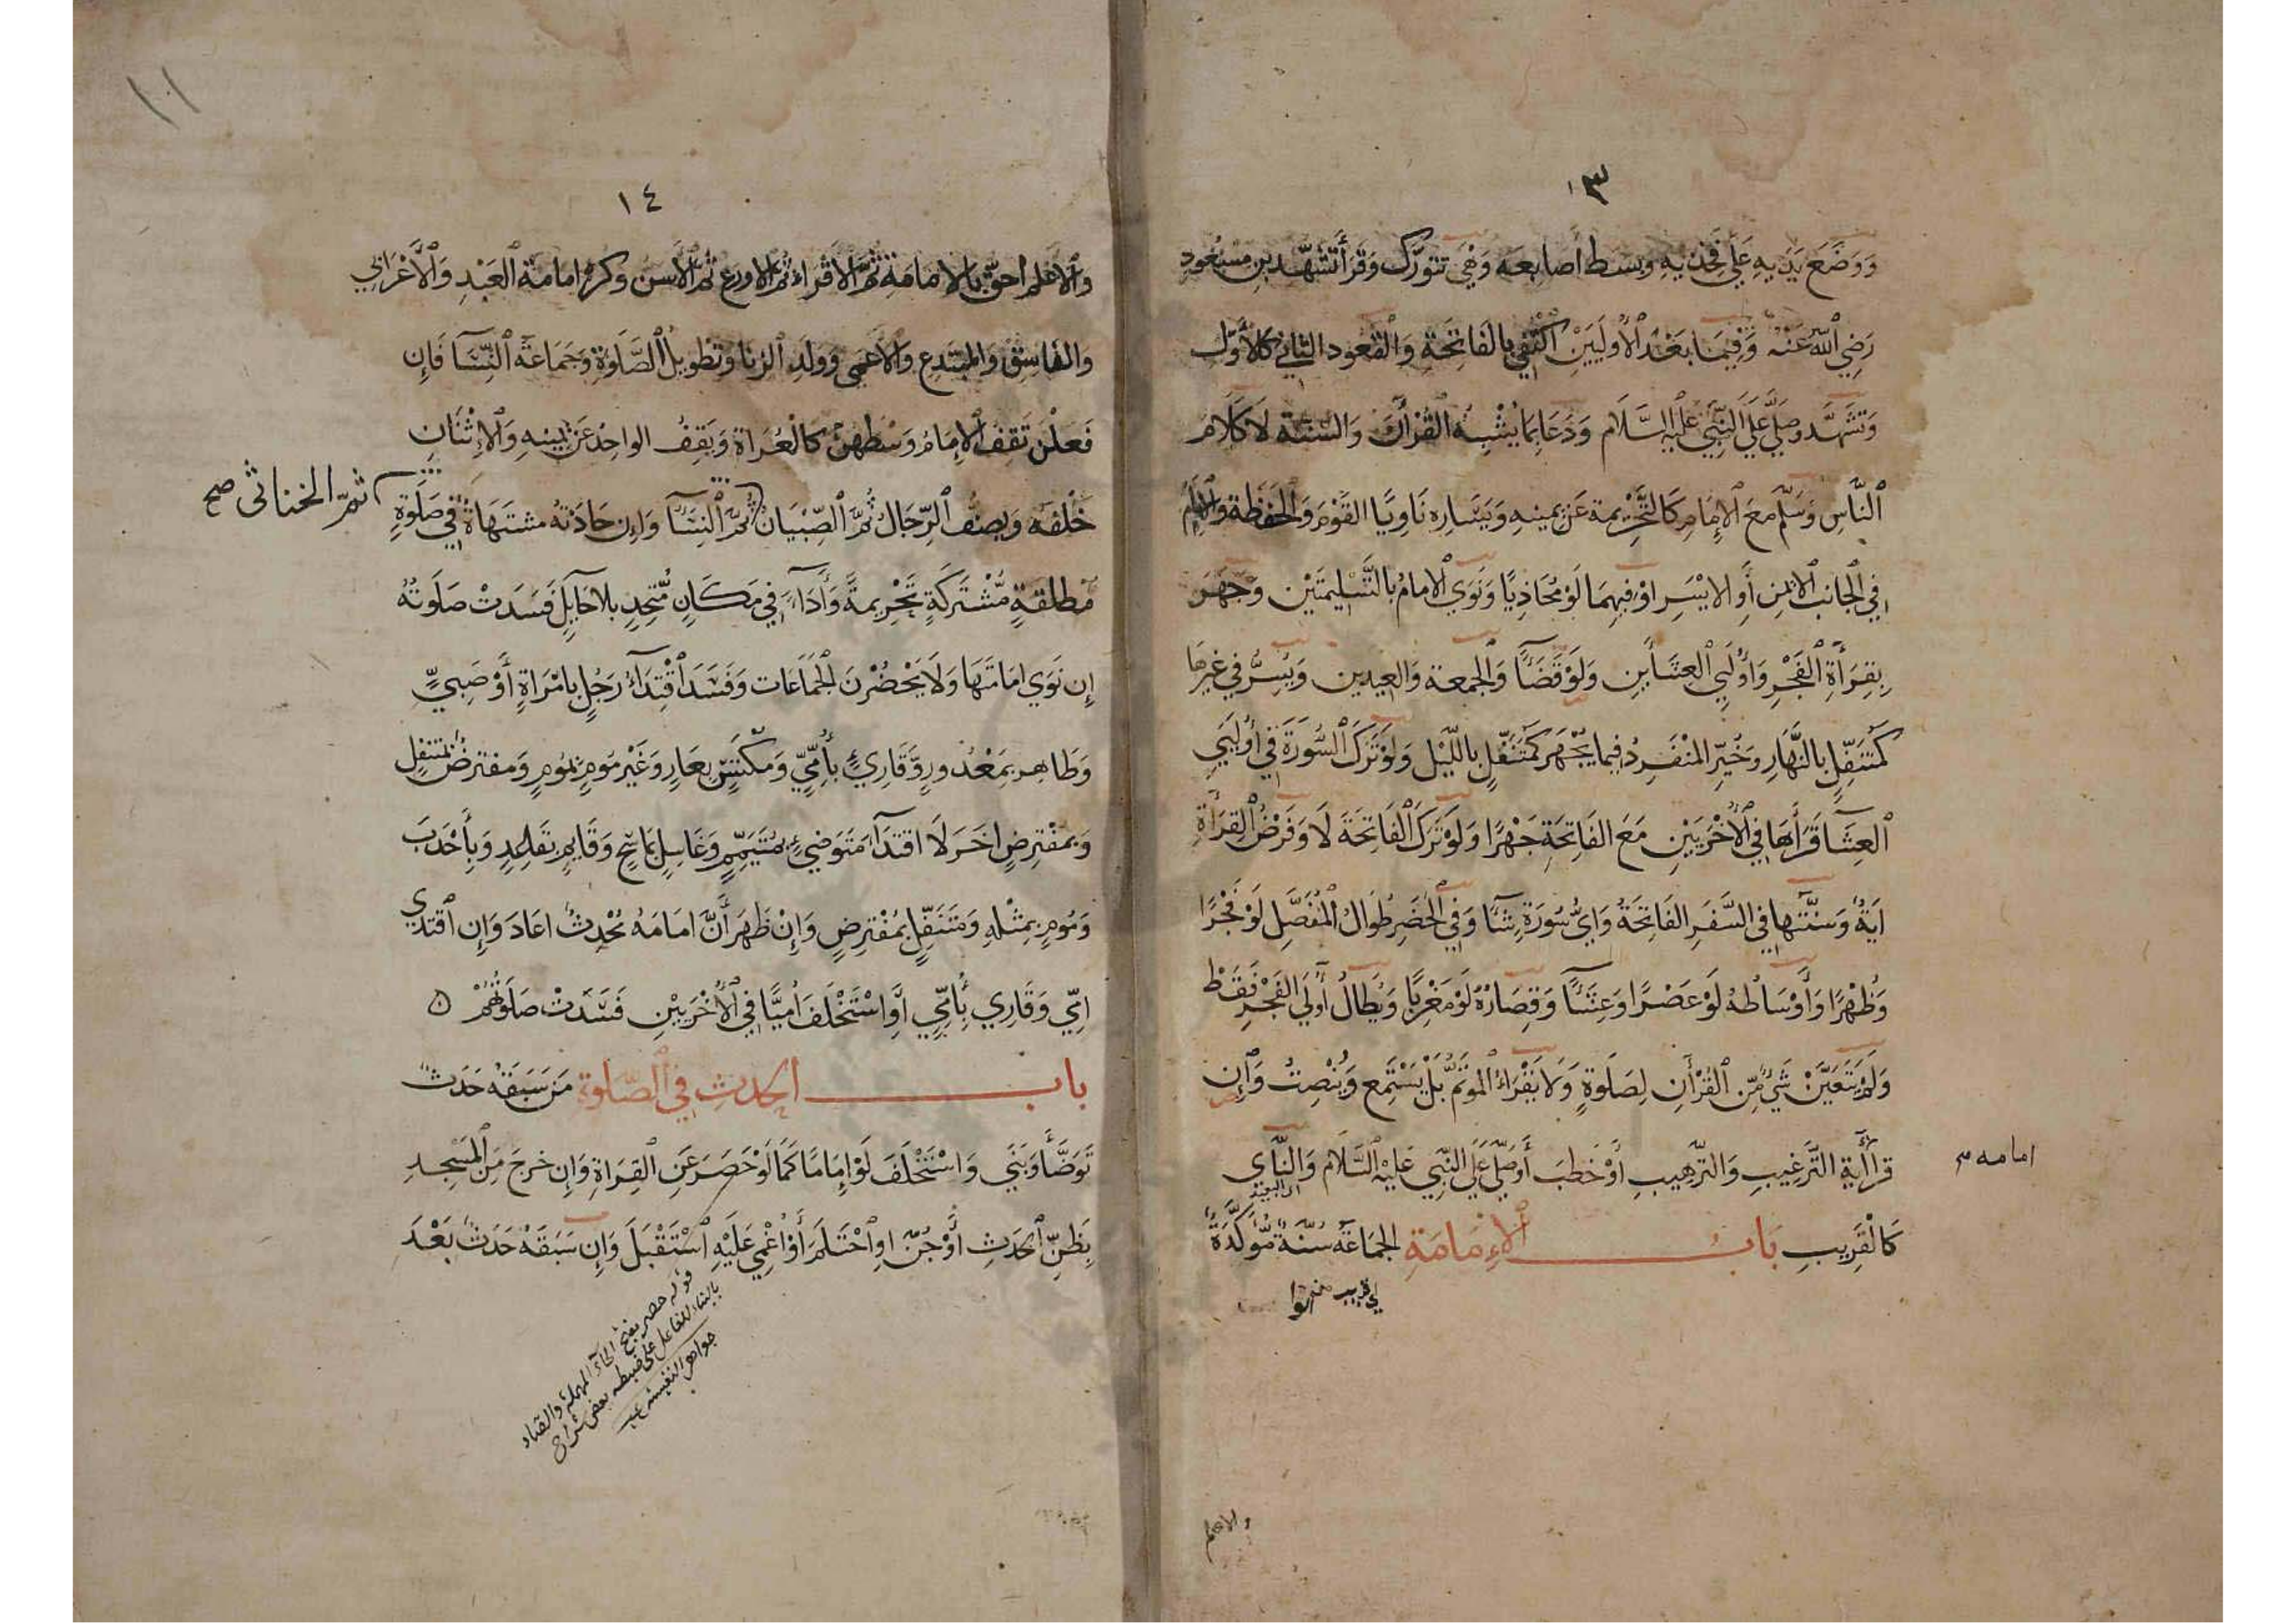 ١٣
وَوَضَعَ يَدَيهِ عَلَى فَخِذَيهِ وبسَط اصابِعَه وَهْيَ تتورّك وَقَرأ تَشَهّد بن مسْعُودٍ
رَضِي ٱللّه عَنْهُ وَفِيمَا بَعْدَ ٱلْأُولَيَيْنِ اكْتَفي بِالفَاتِحَةِ وَالْقُعُود الثاني كَالْأَوَّل
وَتَشَهَّد وَصَلَّي عَلَي ٱلنَّبِيِّ عَلَيْهِ السَّلَام وَدَعَا بمَا يُشْبِهُ الْقُرْآنَ وَالسُّنَّة لَا كَلَام
ٱلنَّاسِ وَسَلَّم مَعَ الإِمَامِ كَالتَّحْرِيمة عَن يمينهِ وَيَسَاره نَاوِيًا القَوْمَ وَالحَفَظَة وَالإِمَام
فِي ٱلجَانب الايمَنِ أَوِ الايْسَرِ اوْ فِيهِمَا لَوْ مُحَاذِيًا وَنَوَي ٱلامامُ بالتَّسْلِيمَتَيْنِ وَجَهَرَ
بِقِرَأَةِ الفَجْرِ وَأُولَيِ العِشَأَينِ وَلَوْ قَضَآءً وَالجمعة وَالعيدين وَيُسِرُّ في غيرهَا
كَمُتَنَفِّلٍ بالنَّهَارِ وَخُيِّرَ المنْفَرِدُ فيما يُجْهَر كَمُتَنَفِّلٍ بالليْل وَلَوْ تَرَكَ السُّورَةَ فِي أُولَيَي
ٱلعِشَآ قَرَأَهَا فِي ٱلأُخْرَيَيْنِ مَعَ الفَاتِحَةِ جَهْرًا وَلَوْ تَرَكَ ٱلْفَاتِحَةَ لَا وَفَرْضُ القِرَأَةِ
ايَةٌ وَسُنَّتها فِي السَّفَرِ الفَاتِحَةُ وَايُّ سُورَةٍ شَآءَ وَفِي الحَضَرِ طُوَالُ ٱلْمُفَصَّلِ لَوْ فَجْرًا
وَظُهْرًا وَأَوْسَاطُهُ لَوْ عَصْرًا وَعِشَآءً وَقِصَارُهُ لَوْ مَغْرِبًا وَيُطَالُ أُولَي الفَجْرِ فَقَطْ
وَلَمْ يَتَعَيَّنْ شَيْءٌ مِّنَ القُرْأَنِ لِصَلَوةٍ وَلَا يَقْرَاءُ المُوتَمُّ بَلْ يَسْتَمِع وَيُنْصِتُ وَإِن
قرَأ أية التَّرْغِيبِ وَالتَّرْهِيبِ أَوْ خَطَبَ أَوْ صَلَّي عَلَي النَّبِي عَلَيْهِ السَّلَام وَالنَّاي
امامه
اي البعيد
كَالْقَرِيبِ بَابُ ٱلْإِمَامَةِ الجَمَاعَة سُنَّةٌ مُّؤكَّدَةٌ
اي قريب
والاعلم
١١
١٤
وٱلأعلم احقّ بالامَامَةِ ثُمَّ ٱلأَقْراء ثم ٱلاورع ثمَّ ٱلأَسن وكره امامَة العَبْدِ وَالأَعْرَابي
والفَاسِقِ وَالمُبْتَدِعِ وَالاعْمي وَوَلَدِ ٱلزنا وتَطْوِيلُ ٱلصَّلوةِ وَجَمَاعَة ٱلنِّسَآ فَإِن
فَعَلْنَ تَقِف ٱلإِمَامُ وَسْطَهُنَّ كالْعُرَاة وَيَقِفُ الواحِدُ عَن يمينهِ وَالاِثْنَانِ
خَلْفَه وَيَصُفُّ ٱلرِّجَالُ ثُمَّ ٱلصِّبْيَانُ ثُمَّ ٱلنِّسَآ وَاِن حَاذَتْهُ مشتَهَاةٌ فِي صَلَوةٍ
ثمّ الخناثى صح
مُّطْلَقَةٍ مُّشْتَرَكَةٍ تَحْرِيمةً وَأَدَآءً في مَكَانٍ مُّتَّحِدٍ بلا حَايِلٍ فَسَدَتْ صَلَوتُهُ
إِن نَوَي امَامَتَهَا وَلَا يَحْضُرْنَ الجَمَاعَات وَفَسَدَ ٱقْتِدَآءُ رَجُلٍ بِامْرَاةٍ أَوْ صَبِيٍّ
وَطَاهِر بِمَعْذُورٍ وَقَارِيءٍ بِأُمِّيٍّ وَمكْتَسٍ بِعَارٍ وَغَيْرِ مُومٍ بمُومٍ وَمفترضٍ بمتنفِلٍ
وَبمفْتِرضٍ اخَرَ لَا اقتدَآءُ مُتَوَضِيءٍ بمُتَيَمِّمٍ وَغَاسِلٍ بمَاسِحٍ وَقَايِمٍ بِقَاعِدٍ وَبِأَحْدَبَ
وَمُومٍ بمِثْلِهِ وَمُتَنَفِّلٍ بمُفْتِرضٍ وَإِنْ ظَهَرَ أَنَّ امَامَهُ مُحْدِثٌ اعَادَ وَإِن ٱقتدَي
امِّي وَقَارِي بِأُمِّيٍ أَوِ اسْتَخْلَفَ أُمِّيًّا فِي ٱلْأُخْرَيَيْنِ فَسَدَتْ صَلَوتُهُمْ
باب ٱلحدث فِي ٱلصَّلوةِ مَن سَبَقَهُ حَدَثٌ
تَوَضَّأَ وَبَنَي وَاسْتَخْلَفَ لَوْ إِمَامًا كَمَا لَوْ حَصَرَ عَنِ القِرَاةِ وَإِن خرجَ مِنَ المَسْجِدِ
بِظَنِّ ٱلحَدَثِ أَوْ جُنَّ اوِ احْتَلَمَ أَوْ أُغْمِيَ عَلَيْهِ ٱسْتَقْبَلَ وَإِن سَبَقَهُ حَدَثٌ بَعْدَ
قوله حصر بفتح الحآء المهملة والصاد
بالبناء للفاعل على ضبطه بعض شراح
جواهر النفيسه